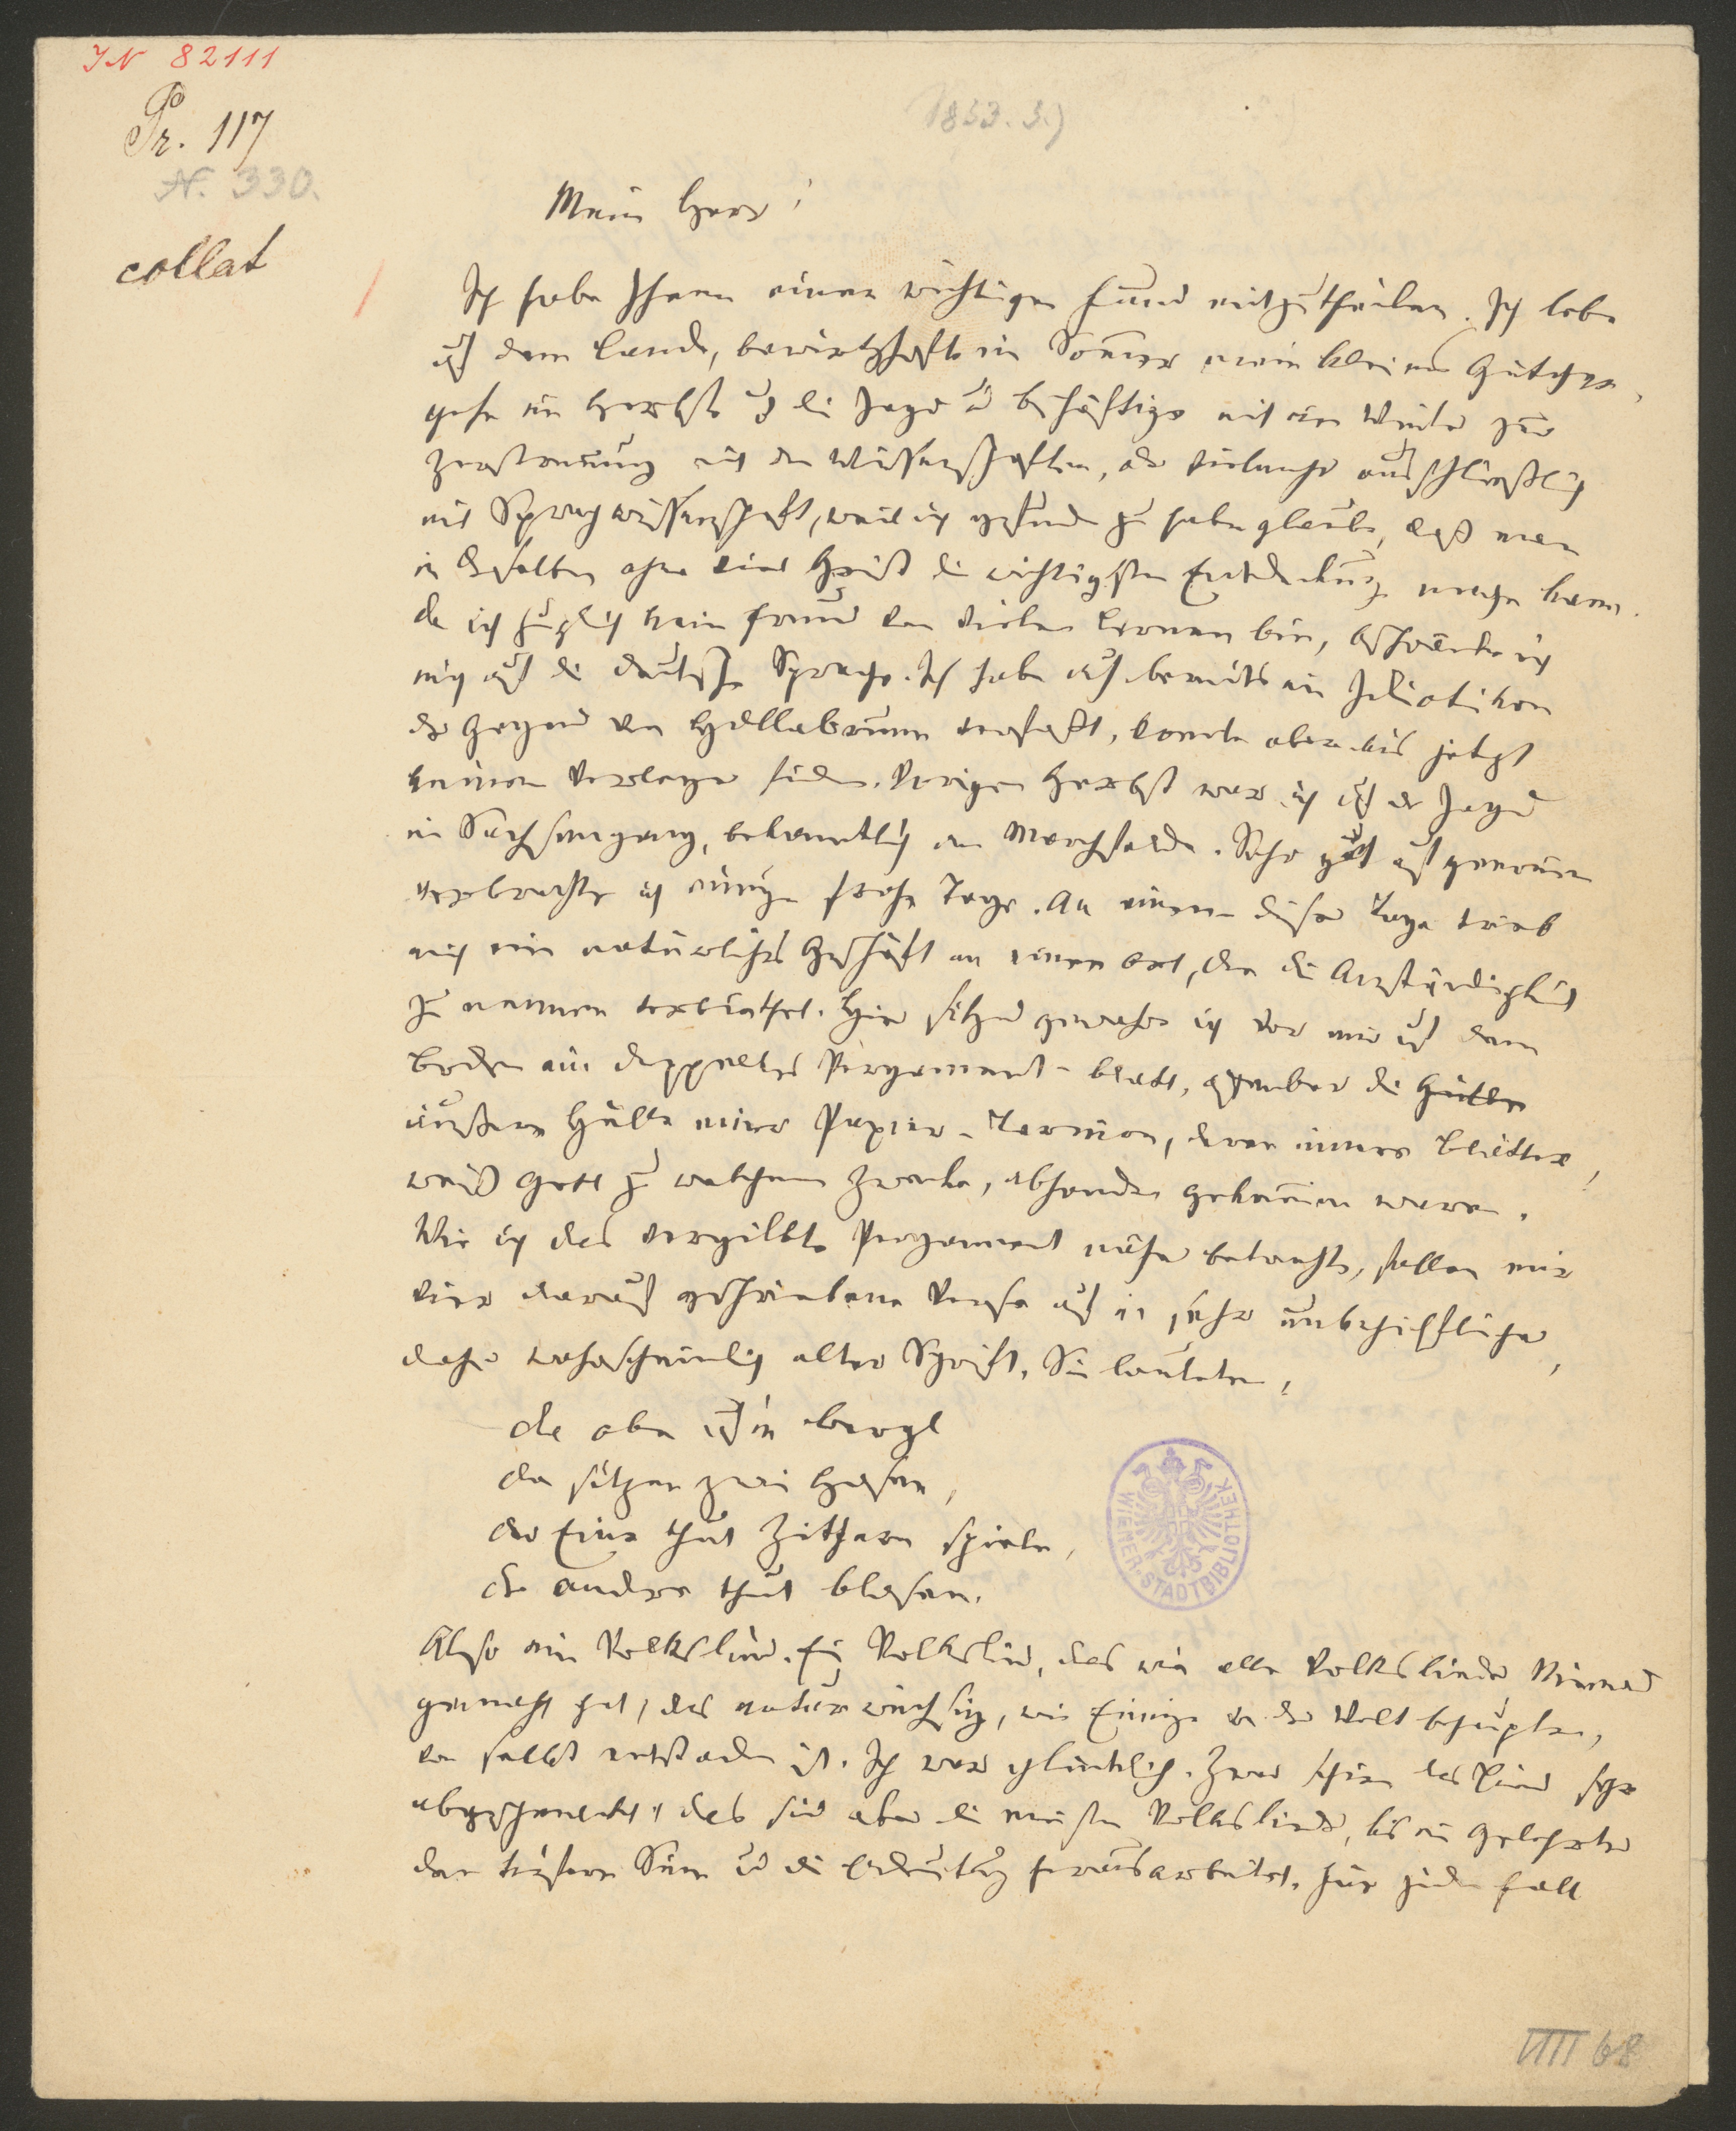 IN 82111
Pr. 117
N. 330.
collat
1853. 3.)
Mein Herr!
Ich habe Ihnen einen wichtigen Fund mitzutheilen. Ich lebe
auf dem Lande, bewirthschafte im Sommer mein kleines Gütchen,
gehe im Herbst auf die Jagd u beschäftige mich im Winter zur
Zerstreuung mit den Wissenschaften, oder vielmehr ausschließlich
mit Sprachwissenschaft, weil ich gefunden zu haben glaube, daß man
in derselben ohne viel Geist die wichtigsten Entdeckung machen kann.
da ich zugleich kein Freund von vielem Lernen bin, beschränke ich
mich auf die deutsche Sprache. Ich habe auch bereits ein Idiotikon
der Gegend von Hollabrunn verfaßt, konnte aber bis jetzt
keinen Verleger finden. Vorigen Herbst war ich auf der Jagd
in Sachsengang, bekanntlich im Marchfelde. Sehr gut aufgenommen
verbrachte ich einige frohe Tage. An einem dieser Tage trieb
mich ein natürliches Geschäft an einen Ort, den die Anständigkeit
zu nennen verbiethet. Hier sitzend gewahre ich vor mir auf dem
Boden ein doppeltes Pergament-blatt, offenbar die Hülle
äußere Hülle eines Papier-, deren innere Blätter,
weiß Gott zu welchem Zwecke, abhanden gekommen waren.
Wie ich das vergilbte Pergament näher betrachte, fallen mir
vier darauf geschriebene Verse auf in sehr unbehilflicher,
daher wahrscheinlich alter Schrift. Sie lauteten,
da oben aufn bergl
da sitzen zwei Hasen,
der Eine thut Zithern spielen,
der andre thut blasen.
Also ein Volkslied. Ein Volkslied, das wie alle Volkslieder Niemand
gemacht hat, das naturwüchsig, wie Einige von der Welt behaupten,
von selbst entstanden ist. Ich war glücklich. Zwar schien das Lied sehr
abgeschmackt, das sind aber die meisten Volkslieder, bis ein Gelehrter
den tiefern Sinn und die Bedeutung herausarbeitet. Für jeden Fall
WIENER-STADTBIBLIOTHEK